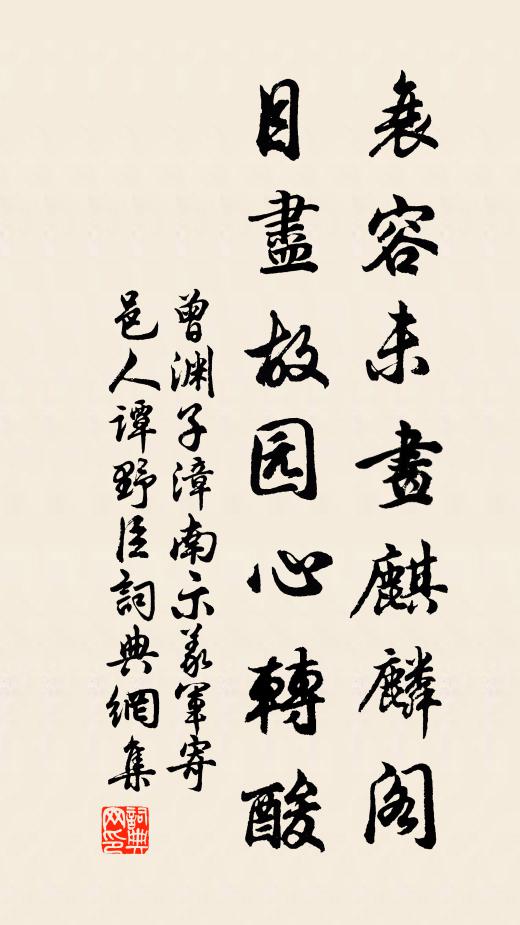 衰容未畫麒麟阁
目盡故园心轉酸
曾渊子漳南示義軍寄
邑人谭野臣詞典網集
詞典網印